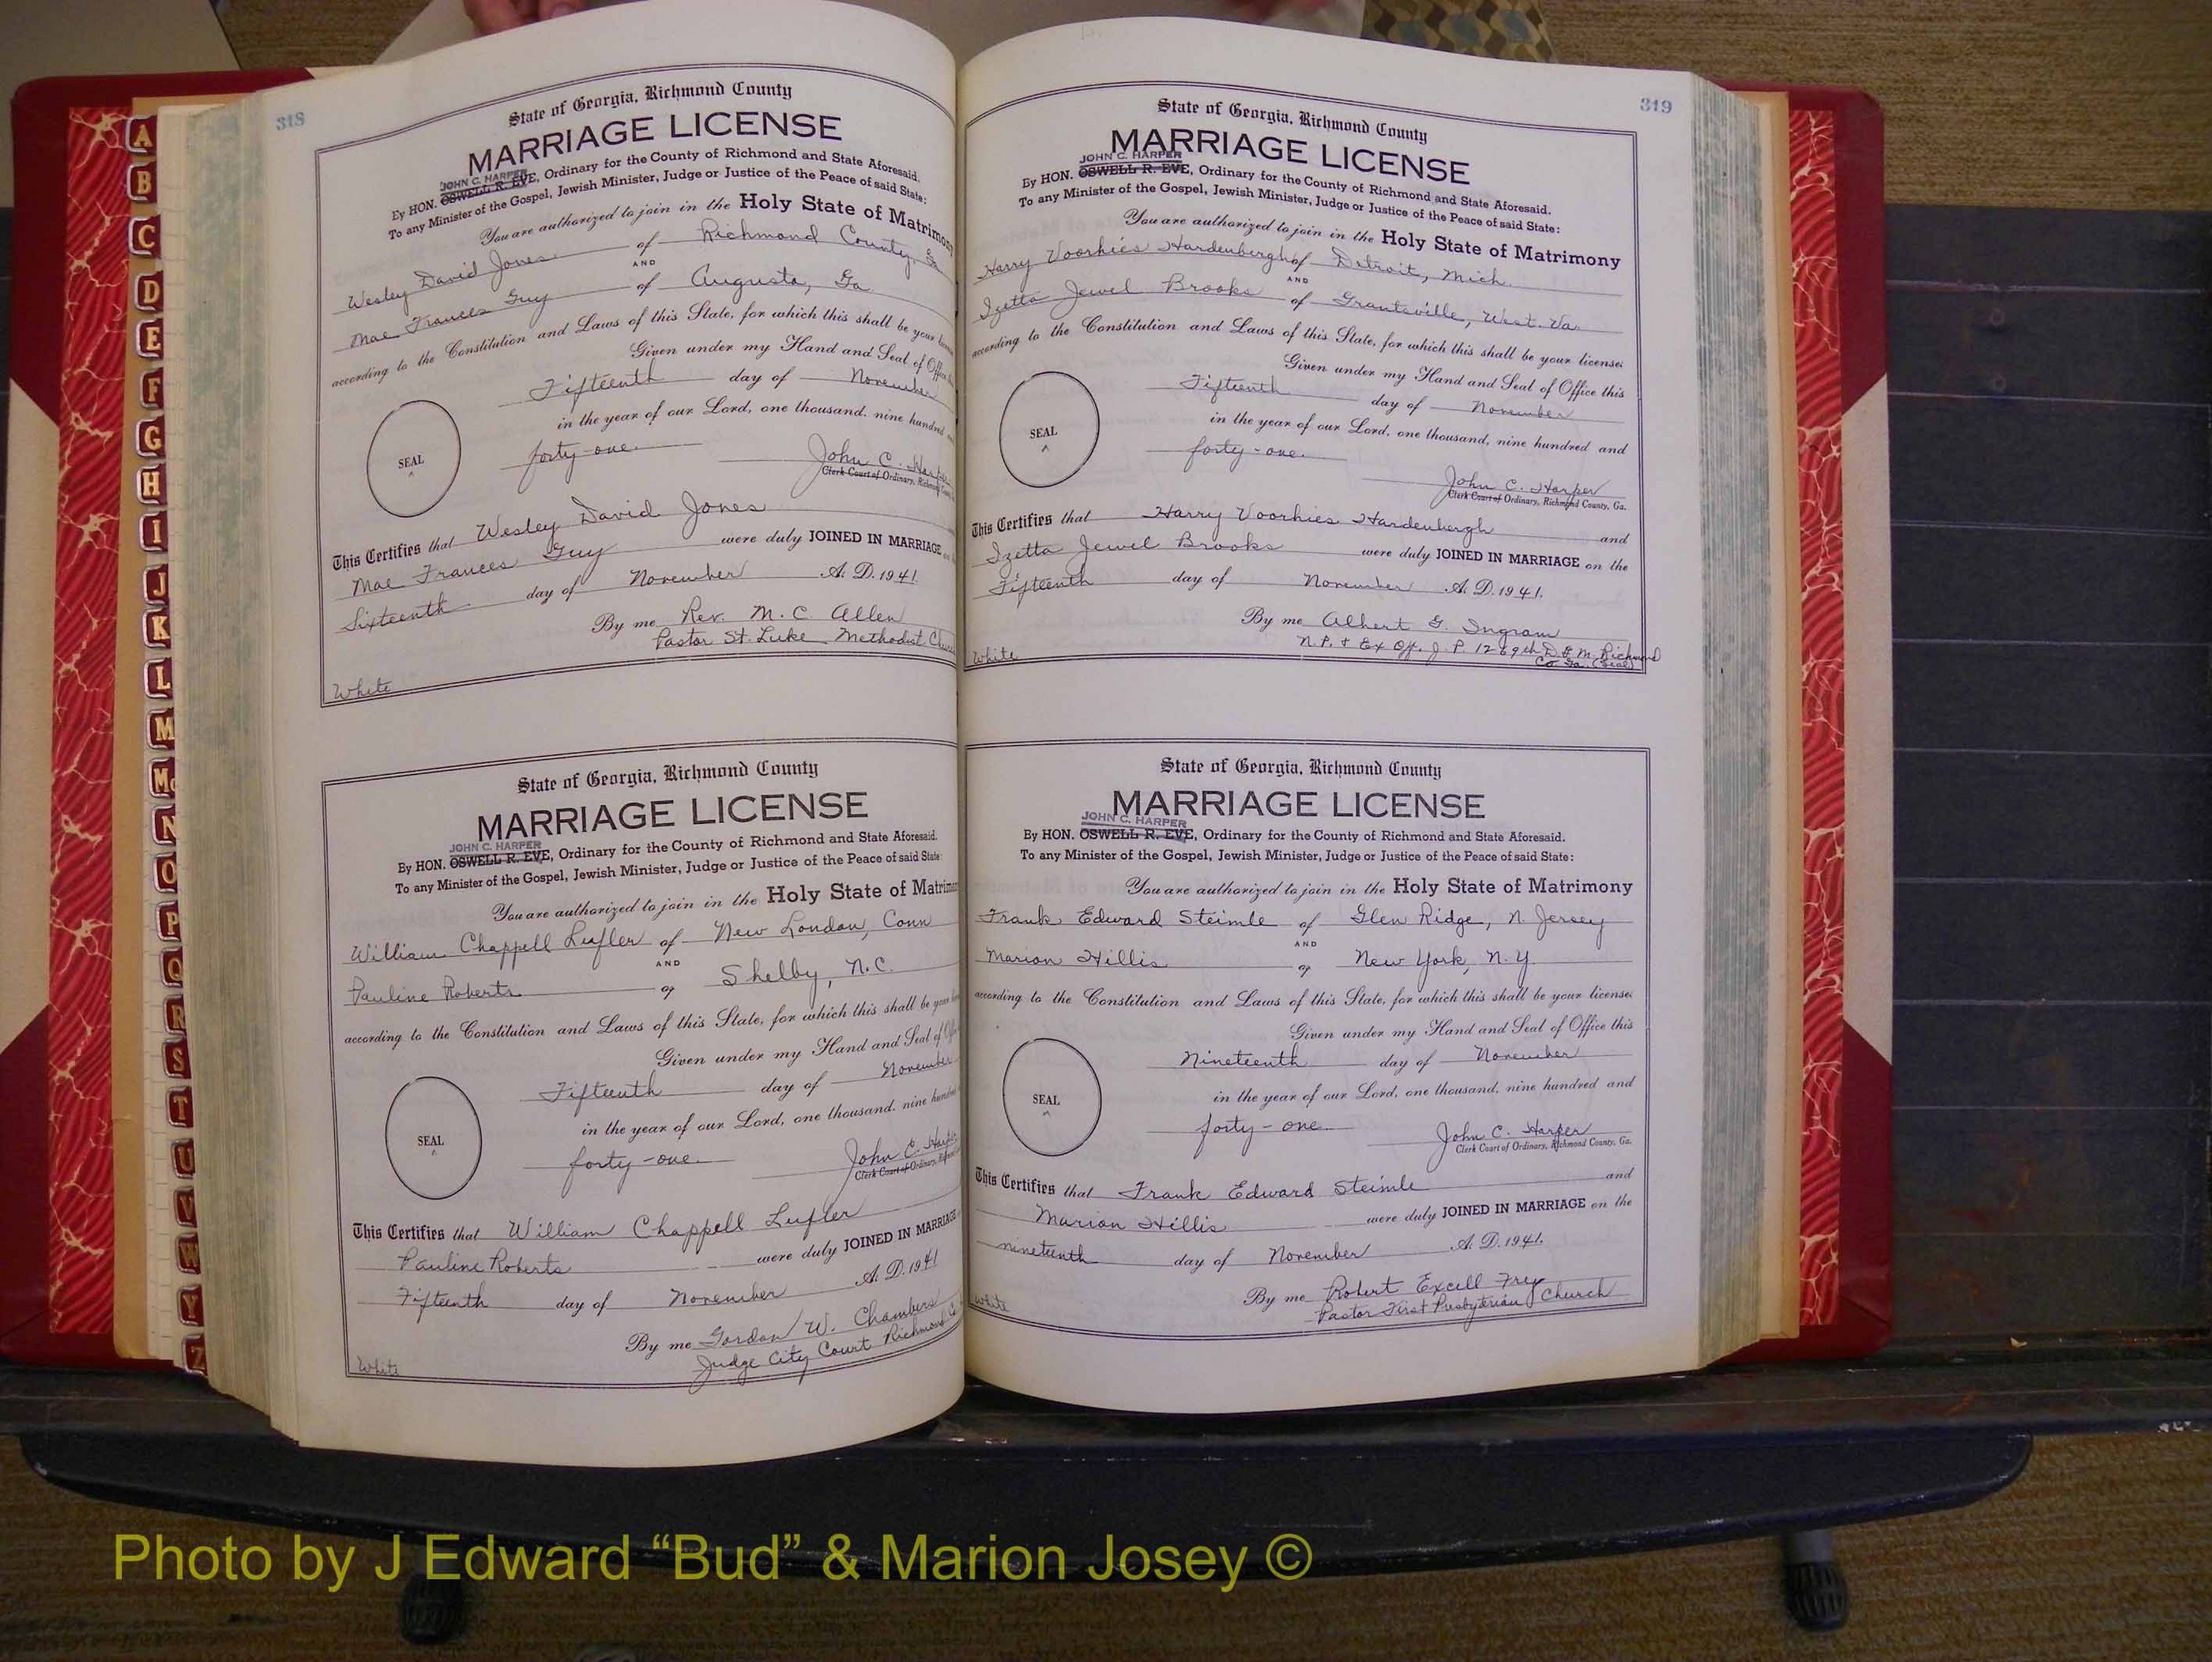 318
State of Georgia, Richmond County
MARRIAGE LICENSE
JOHN C. HARPER
By HON. OSWELL R. EVE, Ordinary for the County of Richmond and State Aforesaid.
To any Minister of the Gospel, Jewish Minister, Judge or Justice of the Peace of said State:
You are authorized to join in the Holy State of Matrimony
Wesley David Jones of Richmond County, Ga
AND
Mae Frances Guy of Augusta, Ga
according to the Constitution and Laws of this State, for which this shall be your
Given under my Hand and Seal of Office
Fifteenth day of November
in the year of our Lord, one thousand, nine hundred
forty-one.
SEAL
John C. Harper
Clerk Court of Ordinary, Richmond
This Certifies that Wesley David Jones
Mae Frances Guy were duly JOINED IN MARRIAGE
Sixteenth day of November A. D. 1941
By me Rev. M. C. Allen
Pastor St. Luke Methodist
White
State of Georgia, Richmond County
MARRIAGE LICENSE
JOHN C. HARPER
By HON. OSWELL R. EVE, Ordinary for the County of Richmond and State Aforesaid.
To any Minister of the Gospel, Jewish Minister, Judge or Justice of the Peace of said State:
You are authorized to join in the Holy State of
William Chappell Lufler of New London, Conn
AND
Pauline Roberts of Shelby, N.C.
according to the Constitution and Laws of this State, for which this shall be your
Given under my Hand and Seal of
Fifteenth day of November
in the year of our Lord, one thousand, nine
forty-one.
SEAL
John C. Harper
Clerk Court of Ordinary,
This Certifies that William Chappell Lufler
Pauline Roberts were duly JOINED IN MARRIAGE
Fifteenth day of November A. D. 1941
By me Gordon W. Chambers
Judge City Court Richmond Co
White
319
State of Georgia, Richmond County
MARRIAGE LICENSE
JOHN C. HARPER
By HON. OSWELL R. EVE, Ordinary for the County of Richmond and State Aforesaid.
To any Minister of the Gospel, Jewish Minister, Judge or Justice of the Peace of said State:
You are authorized to join in the Holy State of Matrimony
Harry Voorhies Hardenbergh of Detroit, Mich.
AND
Izetta Jewel Brooks of Grantsville, West. Va.
according to the Constitution and Laws of this State, for which this shall be your license:
Given under my Hand and Seal of Office this
Fifteenth day of November
in the year of our Lord, one thousand, nine hundred and
forty-one.
SEAL
John C. Harper
Clerk Court of Ordinary, Richmond County, Ga.
This Certifies that Harry Voorhies Hardenbergh and
Izetta Jewel Brooks were duly JOINED IN MARRIAGE on the
Fifteenth day of November A. D. 1941.
By me Albert G. Ingram
N.P. & Ex Off. J. P. 1269th D. G. M. Richmond
Co Ga. (Seal)
White
State of Georgia, Richmond County
MARRIAGE LICENSE
JOHN C. HARPER
By HON. OSWELL R. EVE, Ordinary for the County of Richmond and State Aforesaid.
To any Minister of the Gospel, Jewish Minister, Judge or Justice of the Peace of said State:
You are authorized to join in the Holy State of Matrimony
Frank Edward Steimle of Glen Ridge, N. Jersey
AND
Marion Hillis of New York, N.Y.
according to the Constitution and Laws of this State, for which this shall be your license:
Given under my Hand and Seal of Office this
Nineteenth day of November
in the year of our Lord, one thousand, nine hundred and
forty-one.
SEAL
John C. Harper
Clerk Court of Ordinary, Richmond County, Ga.
This Certifies that Frank Edward Steimle and
Marion Hillis were duly JOINED IN MARRIAGE on the
nineteenth day of November A. D. 1941.
By me Robert Excell Fry
Pastor First Presbyterian Church
White
A
B
C
D
E
F
G
H
I
J
K
L
M
Mc
N
O
P
Q
R
S
T
U
V
W
Y
Z
Photo by J Edward “Bud” & Marion Josey ©